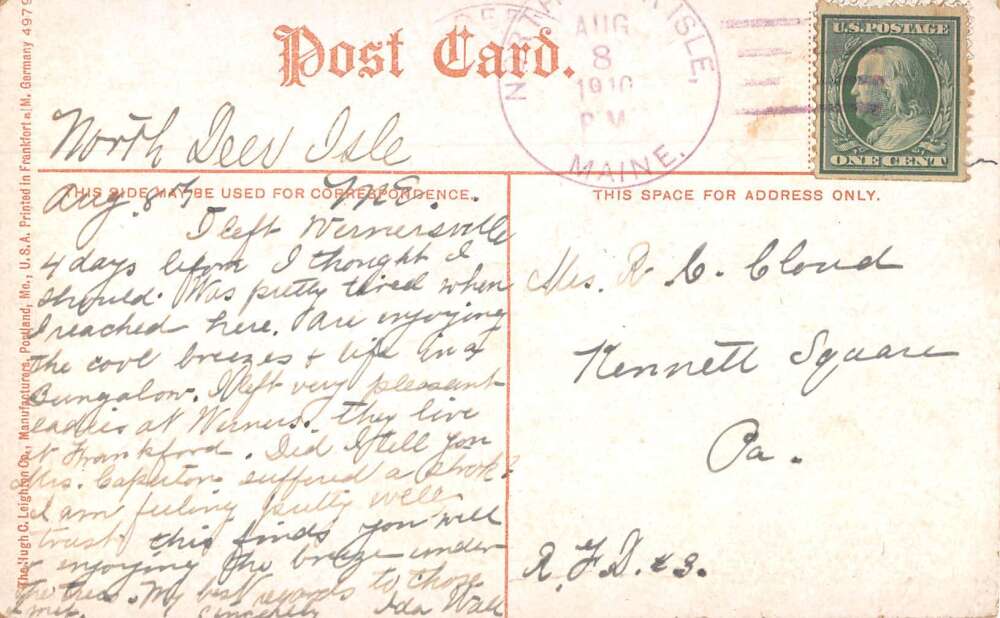 Post Card.
NORTH DEER ISLE,
AUG
8
1910
P M
MAINE.
U.S. POSTAGE
ONE CENT
North Deer Isle
Aug. 8th ME.
THIS SIDE MAY BE USED FOR CORRESPONDENCE.
THIS SPACE FOR ADDRESS ONLY.
I left Wernersville
4 days before I thought I
should. Was pretty tired when
I reached here. Are enjoying
the cool breezes & life in a
Bungalow. I left very pleasant
ladies at Werners. they live
at Frankford. Did I tell you
Mrs. Caperton suffered a stroke?
I am feeling pretty well
trust this finds you well
& enjoying the breeze under
the trees. My best regards to those
I met. Sincerely Ida Wall
Mrs. R. C. Cloud
Kennett Square
Pa.
R. F. D. #3.
The Hugh C. Leighton Co., Manufacturers, Portland, Me., U.S.A. Printed in Frankfort a/M. Germany 4979